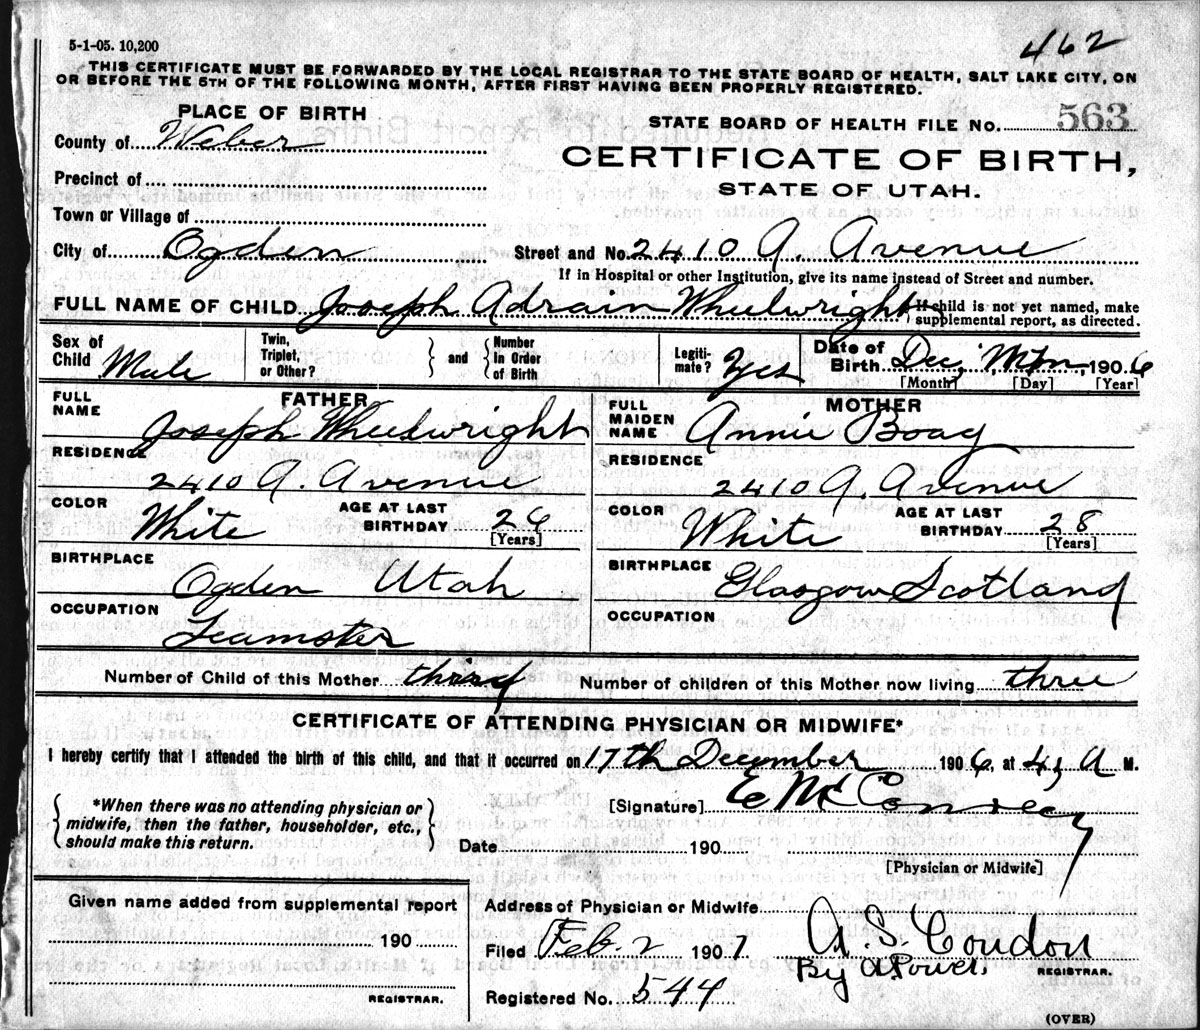 5-1-05. 10,200
462
THIS CERTIFICATE MUST BE FORWARDED BY THE LOCAL REGISTRAR TO THE STATE BOARD OF HEALTH, SALT LAKE CITY, ON
OR BEFORE THE 5TH OF THE FOLLOWING MONTH, AFTER FIRST HAVING BEEN PROPERLY REGISTERED.
PLACE OF BIRTH
STATE BOARD OF HEALTH FILE No. 563
County of Weber
CERTIFICATE OF BIRTH,
STATE OF UTAH.
Precinct of
Town or Village of
City of Ogden Street and No. 2410 A. Avenue
If in Hospital or other Institution, give its name instead of Street and number.
FULL NAME OF CHILD Joseph Adrain Wheelwright { If child is not yet named, make supplemental report, as directed.
Sex of Child Male
Twin, Triplet, or Other? } and { Number in Order of Birth
Legiti-mate? Yes
Date of Birth Dec, 190 6
[Month] [Day] [Year]
FATHER
FULL NAME Joseph Wheelwright
RESIDENCE 2410 A. Avenue
COLOR White AGE AT LAST BIRTHDAY 26 [Years]
BIRTHPLACE Ogden Utah
OCCUPATION Teamster
MOTHER
FULL MAIDEN NAME Annie Boag
RESIDENCE 2410 A. Avenue
COLOR White AGE AT LAST BIRTHDAY 28 [Years]
BIRTHPLACE Glasgow Scotland
OCCUPATION
Number of Child of this Mother third Number of children of this Mother now living three
CERTIFICATE OF ATTENDING PHYSICIAN OR MIDWIFE*
I hereby certify that I attended the birth of this child, and that it occurred on 17th December 190 6, at 4, A M.
{ *When there was no attending physician or midwife, then the father, householder, etc., should make this return. }
[Signature] E
Date 190
[Physician or Midwife]
Given name added from supplemental report
190
REGISTRAR.
Address of Physician or Midwife
Filed Feb. 2 190 7 A. S. Condon
By REGISTRAR.
Registered No. 544
(OVER)